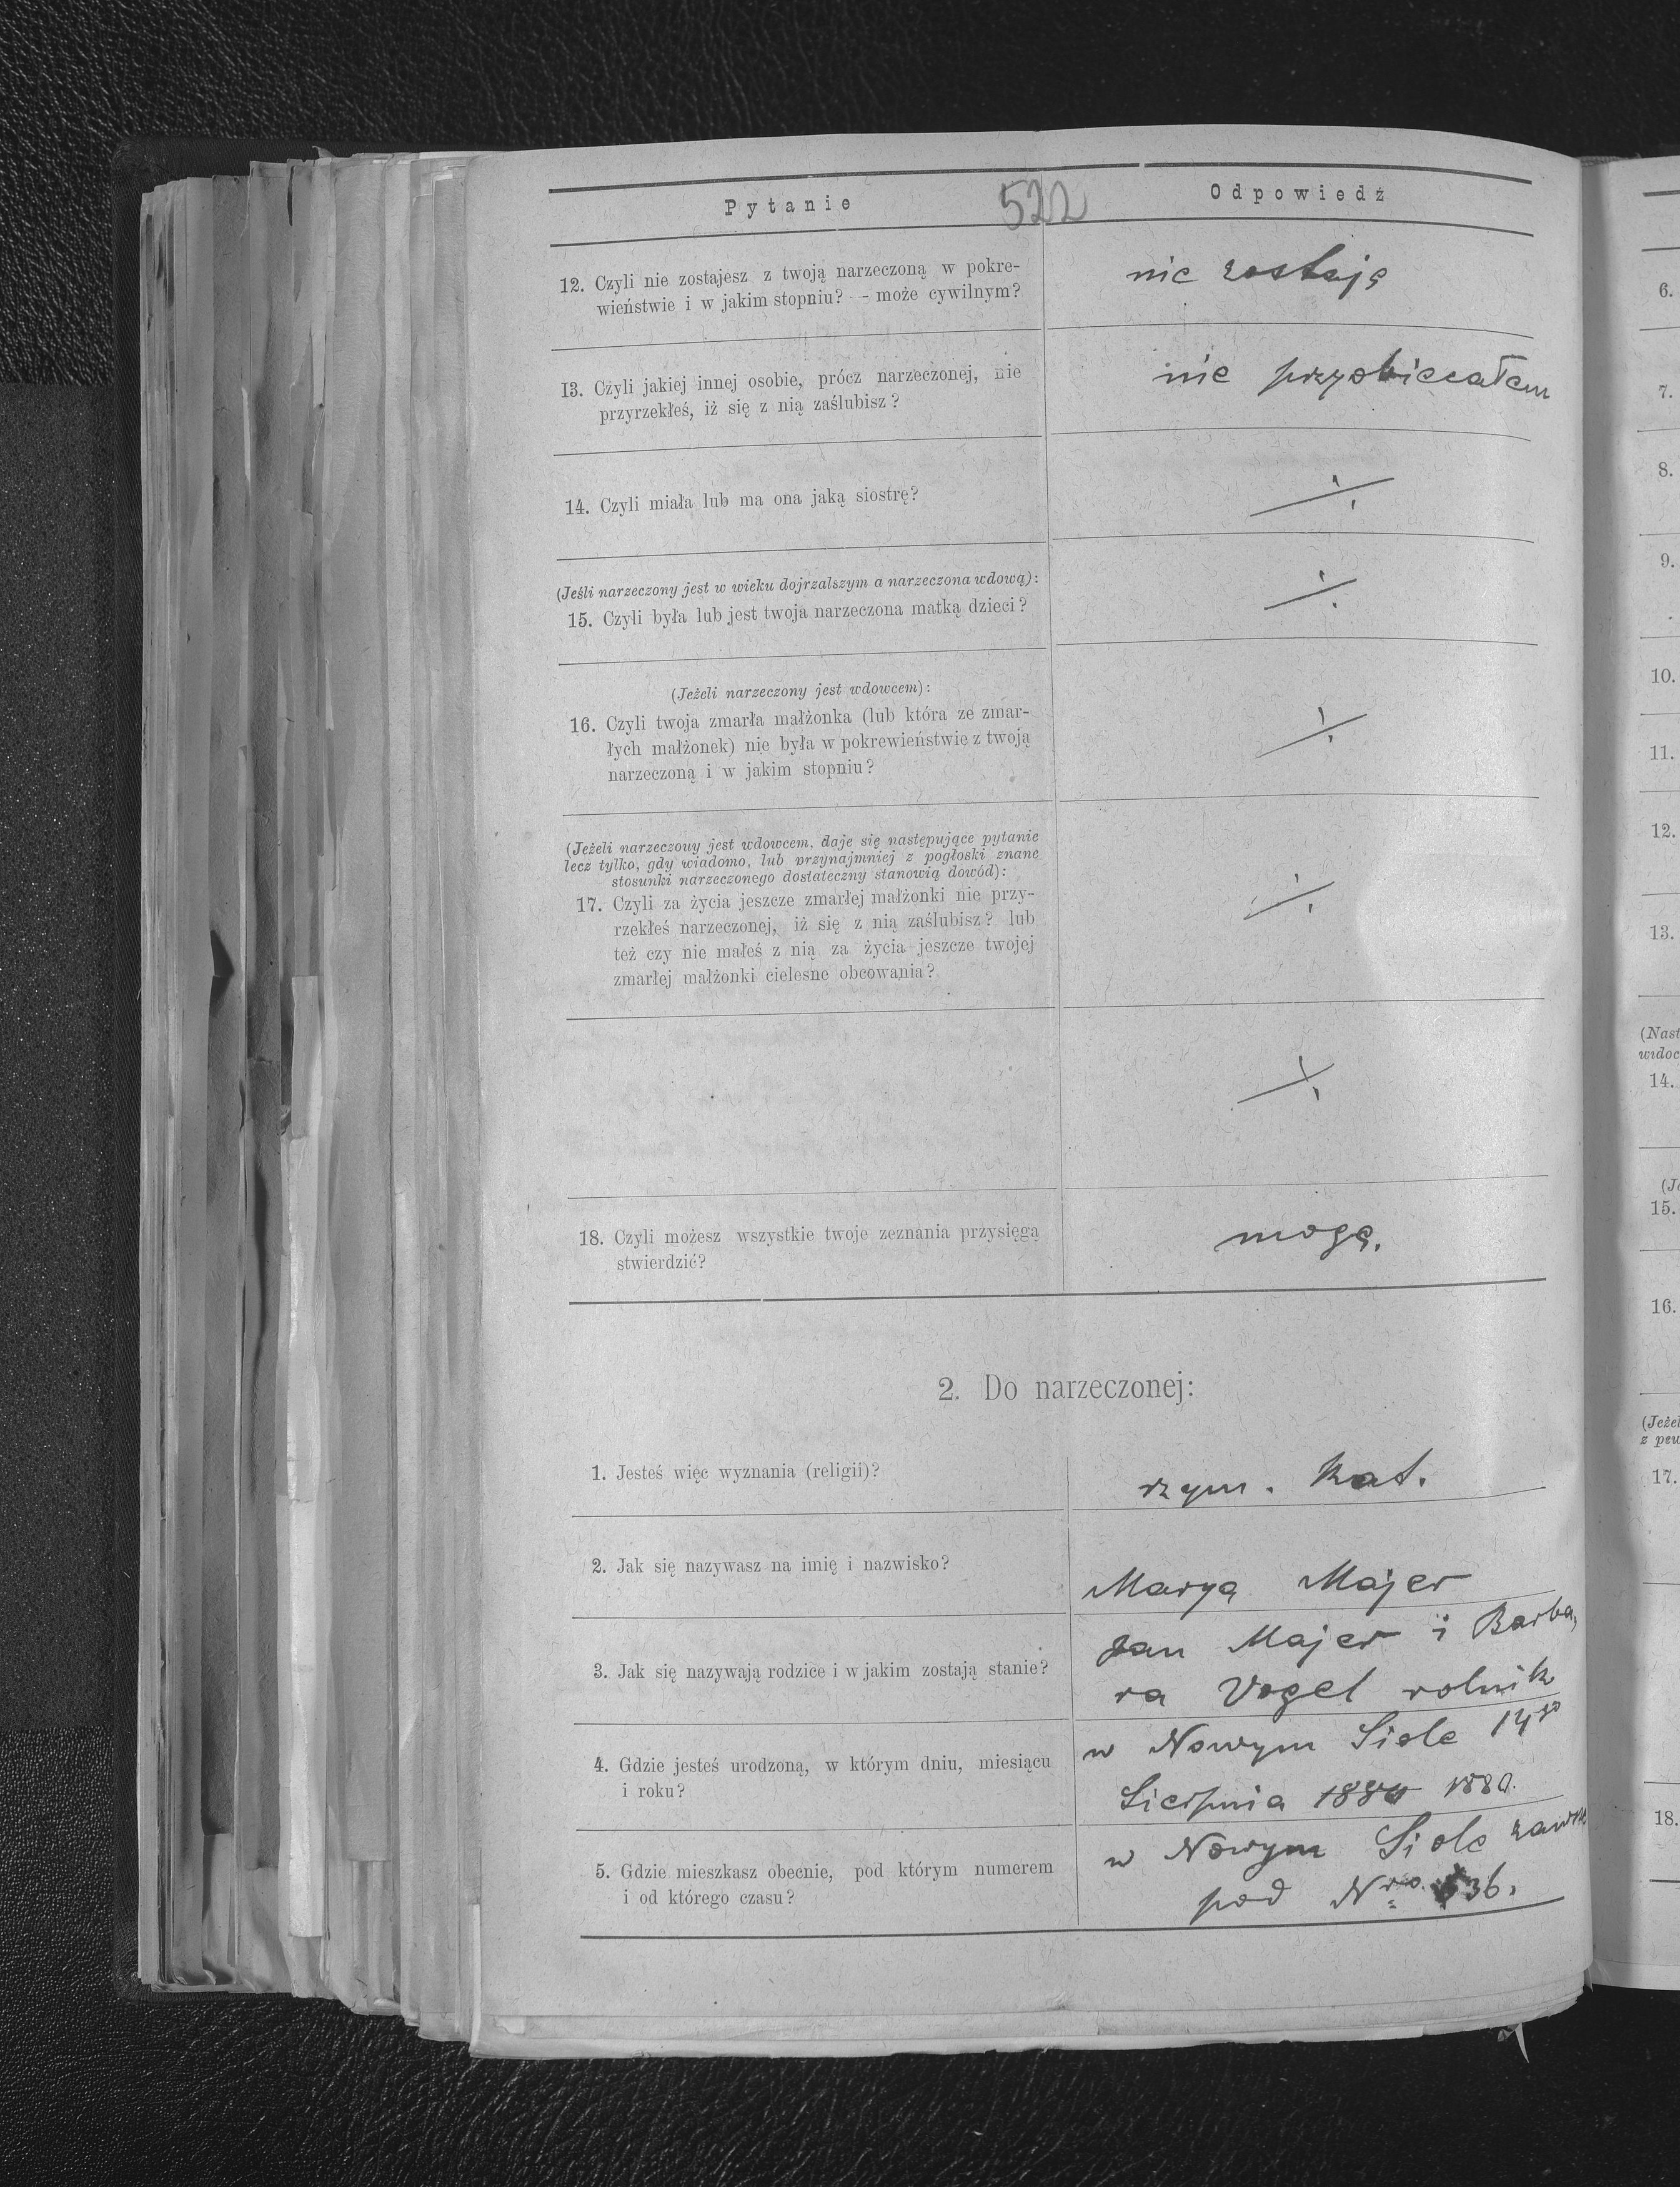 Pytanie 522 Odpowiedź
12. Czyli nie zostajesz z twoją narzeczoną w pokre-
wieństwie i w jakim stopniu? – może cywilnym?
nie zostaję
13. Czyli jakiej innej osobie, prócz narzeczonej, nie
przyrzekłeś, iż się z nią zaślubisz?
nie przyobiecałem
14. Czyli miała lub ma ona jaką siostrę?
(Jeśli narzeczony jest w wieku dojrzalszym a narzeczona wdową):
15. Czyli była lub jest twoja narzeczona matką dzieci?
(Jeżeli narzeczony jest wdowcem):
16. Czyli twoja zmarła małżonka (lub która ze zmar-
łych małżonek) nie była w pokrewieństwie z twoją
narzeczoną i w jakim stopniu?
(Jeżeli narzeczony jest wdowcem, daje się następujące pytanie
lecz tylko, gdy wiadomo, lub przynajmniej z pogłoski znane
stosunki narzeczonego dostateczny stanowią dowód):
17. Czyli za życia jeszcze zmarłej małżonki nie przy-
rzekłeś narzeczonej, iż się z nią zaślubisz? lub
też czy nie małeś z nią za życia jeszcze twojej
zmarłej małżonki cielesne obcowania?
18. Czyli możesz wszystkie twoje zeznania przysięgą
stwierdzić?
mogę.
2. Do narzeczonej:
1. Jesteś więc wyznania (religii)?
rzym. kat.
2. Jak się nazywasz na imię i nazwisko?
Marya Majer
3. Jak się nazywają rodzice i w jakim zostają stanie?
Jan Majer i Barba,
ra Vogel rolnik
4. Gdzie jesteś urodzoną, w którym dniu, miesiącu
i roku?
w Nowym Siole 14go
Sierpnia 1880 1880.
5. Gdzie mieszkasz obecnie, pod którym numerem
i od którego czasu?
w Nowym Siole zawsze
pod Nro. 36.
6.
7.
8.
9.
10.
11.
12.
13.
(Nast
widoc
14.
(Je
15.
16.
(Jeżel
z pew
17.
18.